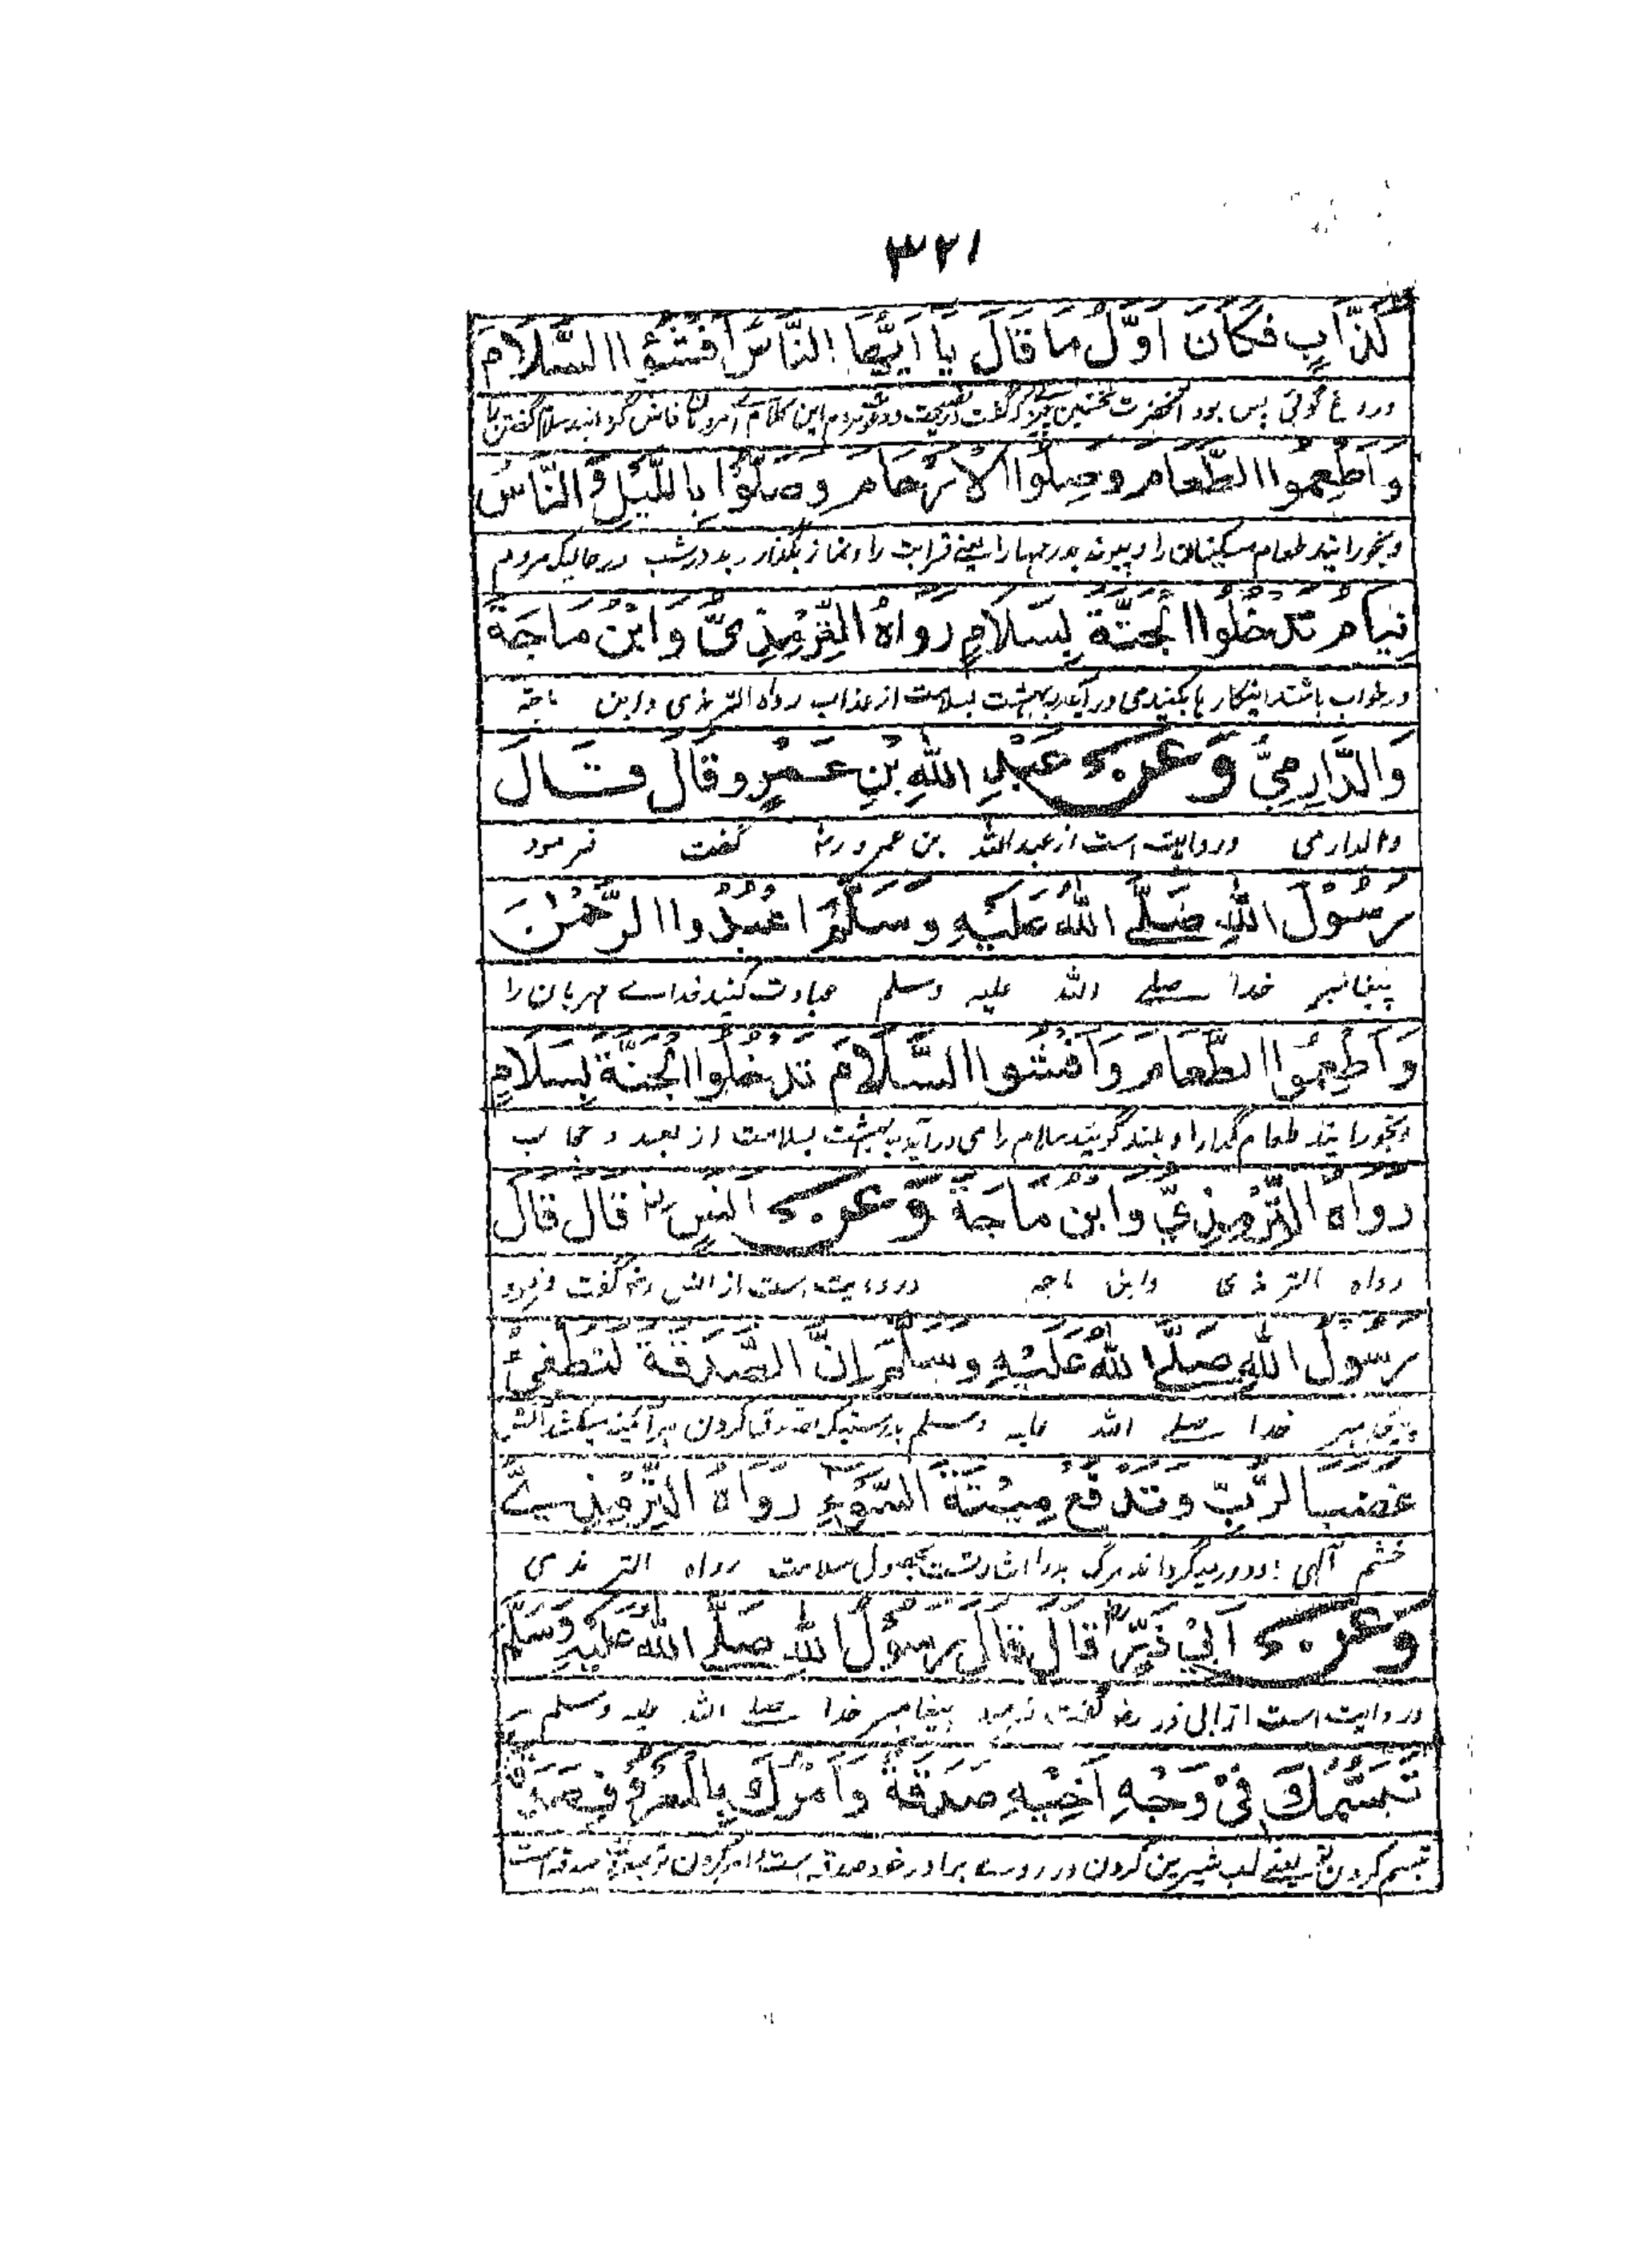 ۳۲۱
كَذَّابٍ فَكَانَ اَوَّلُ مَا قَالَ يَا اَيُّهَا النَّاسُ اَفْشُوا السَّلَامَ
دروغ گوئی پس بود آنحضرت نخستین چیز که گفت این کلام فاش گردانید سلام گفتن را
وَاَطْعِمُوا الطَّعَامَ وَصِلُوا الْاَرْحَامَ وَصَلُّوْا بِاللَّيْلِ وَالنَّاسُ
وبخورانید طعام مسکینان را و پیوند بدرحمها را یعنی قرابت را ونماز بگذارید در شب درحالیکه مردم
نِيَامٌ تَدْخُلُوا الْجَنَّةَ بِسَلَامٍ رَوَاهُ التِّرْمِذِيُّ وَابْنُ مَاجَةَ
درخواب باشند اینکار ها بکنید می درآئید بهشت بسلامت از عذاب رواه الترمذی وابن ماجة
وَالدَّارِمِيُّ وَعَنْ عَبْدِ اللّٰهِ بْنِ عَمْرٍو قَالَ قَالَ
والدارمی وروایت است از عبدالله بن عمرو رض گفت فرمود
رَسُوْلُ اللّٰهِ صَلَّے اللّٰهُ عَلَيْهِ وَسَلَّمَ اعْبُدُوا الرَّحْمٰنَ
پیغامبر خدا صلے الله علیه وسلم عبادت کنید خداے مهربان را
وَاَطْعِمُوا الطَّعَامَ وَاَفْشُوا السَّلَامَ تَدْخُلُوا الْجَنَّةَ بِسَلَامٍ
وبخورانید طعام گدا را و بلند گوئید سلام را می درآئید بهشت بسلامت از بعد و حجاب
رَوَاهُ التِّرْمِذِيُّ وَابْنُ مَاجَةَ وَعَنْ اَنَسٍ رض قَالَ قَالَ
رواه الترمذی وابن ماجه وروایت است از انس رض گفت فرمود
رَسُوْلُ اللّٰهِ صَلَّے اللّٰهُ عَلَيْهِ وَسَلَّمَ اِنَّ الصَّدَقَةَ لَتُطْفِئُ
پیغامبر خدا صلے الله علیه وسلم بدرستیکه صدقه کردن هرآئینه میکشد آتش
غَضَبَ الرَّبِّ وَتَدْفَعُ مِيْتَةَ السُّوْءِ رَوَاهُ التِّرْمِذِيُّ
خشم آلهی ودور میگرداند مرگ بد را اشارت سلامت رواه الترمذی
وَعَنْ اَبِيْ ذَرٍّ قَالَ قَالَ رَسُوْلُ اللّٰهِ صَلَّے اللّٰهُ عَلَيْهِ وَسَلَّمَ
وروایت است از ابی ذر رض گفت فرمود پیغامبر خدا صلے الله علیه وسلم
تَبَسُّمُكَ فِيْ وَجْهِ اَخِيْهِ صَدَقَةٌ وَاَمْرُكَ بِالْمَعْرُوْفِ صَدَقَةٌ
تبسم کردن تو یعنے لب شیرین کردن در روے برادر خود صدقه است وامر کردن تو صدقه است